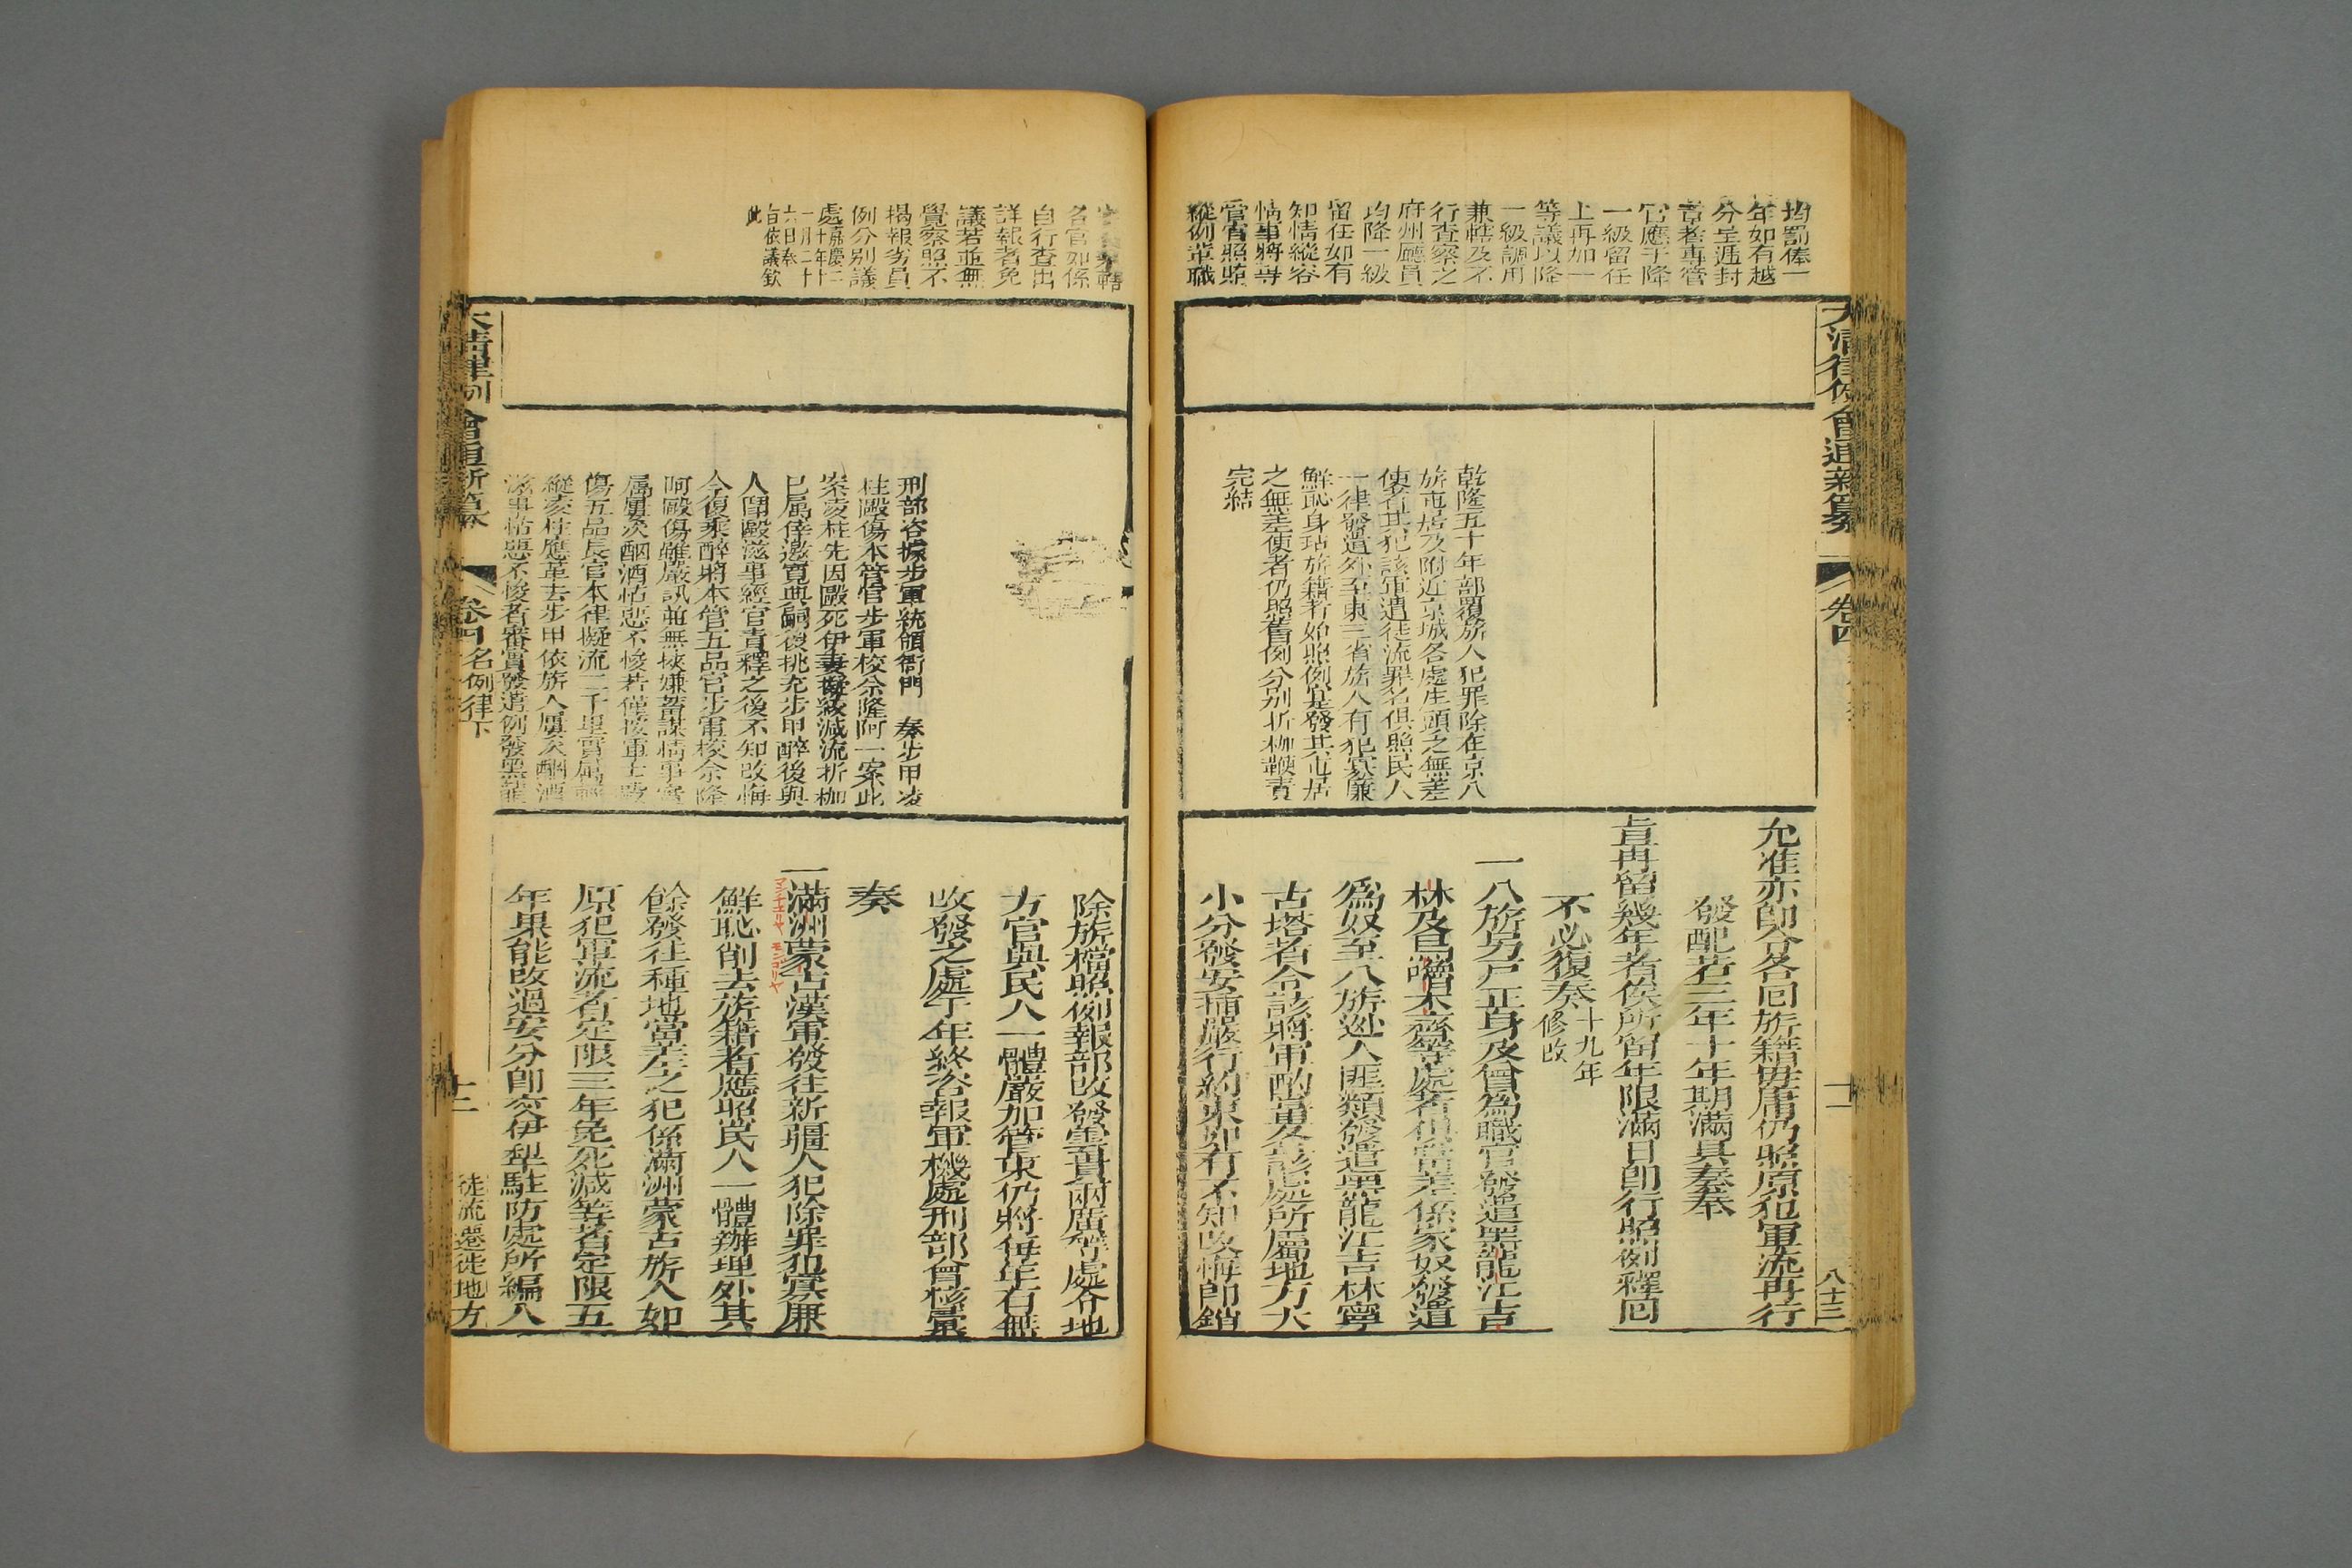 大清律例會通新纂
卷四
八十三
均罰俸一
年如有越
分呈遞封
章者專管
官應予降
一級留任
上再加一
等議以降
一級調用
兼轄及不
行查察之
府州廳員
均降一級
留任如有
知情縱容
情事將專
管官照照
縱例革職
乾隆五十年部覆旂人犯罪除在京八
旂屯居及附近京城各處庄頭之無差
使者其犯該軍遣徒流罪名俱照民人
一律發遣外至東三省旂人有犯寡廉
鮮恥身玷旂籍者如照例實發其屯居
之無差使者仍照舊例分別折枷鞭責
完結
允准亦即令各回旂籍毋庸仍照原犯軍流再行
發配若三年十年期滿具奏奉
旨再留幾年者俟所留年限滿日即行照例釋回
不必復奏十九年修改
一八旂另戶正身及曾為職官發遣黑龍江吉
林及烏嚕木齊等處者俱當差係家奴發遣
為奴至八旂逃人匪類發遣黑龍江吉林寧
古塔者令該將軍酌量交該處所屬地方大
小分發安插嚴行約束如有不知改悔即銷
轄
各官如係
自行查出
詳報者免
議若並無
覺察照不
揭報劣員
例分別議
處嘉慶二
十年十
一月二十
六日奉
旨依議欽
此
刑部咨據步軍統領衙門 奏步甲凌
柱毆傷本管官步軍校佘隆阿一案此
案凌柱先因毆死伊妻擬絞減流折枷
已屬倖邀寬典嗣後挑充步甲醉後與
人鬪毆滋事經官責釋之後不知改悔
今復乘醉將本管五品官步軍校佘隆
阿毆傷雖嚴訊並無挾嫌蓄謀情事實
屬屢次酗酒怙惡不悛若僅按軍士毆
傷五品長官本律擬流二千里實屬輕
縱凌柱應革去步甲依旂人屢次酗酒
滋事怙惡不悛者審實發遣例發黑龍
除旂檔照例報部改發雲貴兩廣等處各地
方官與民人一體嚴加管束仍將每年有無
改發之處于年終咨報軍機處刑部會核彙
奏
一滿洲蒙古漢軍發往新疆人犯除罪犯寡廉
マンチユリヤ モンゴリヤ
鮮恥削去旂籍者應照民人一體辦理外其
餘發往種地當差之犯係滿洲蒙古旂人如
原犯軍流者定限三年免死減等者定限五
年果能改過安分即交伊犁駐防處所編入
大清律例會通新纂
卷四名例律下
十二
徒流遷徙地方